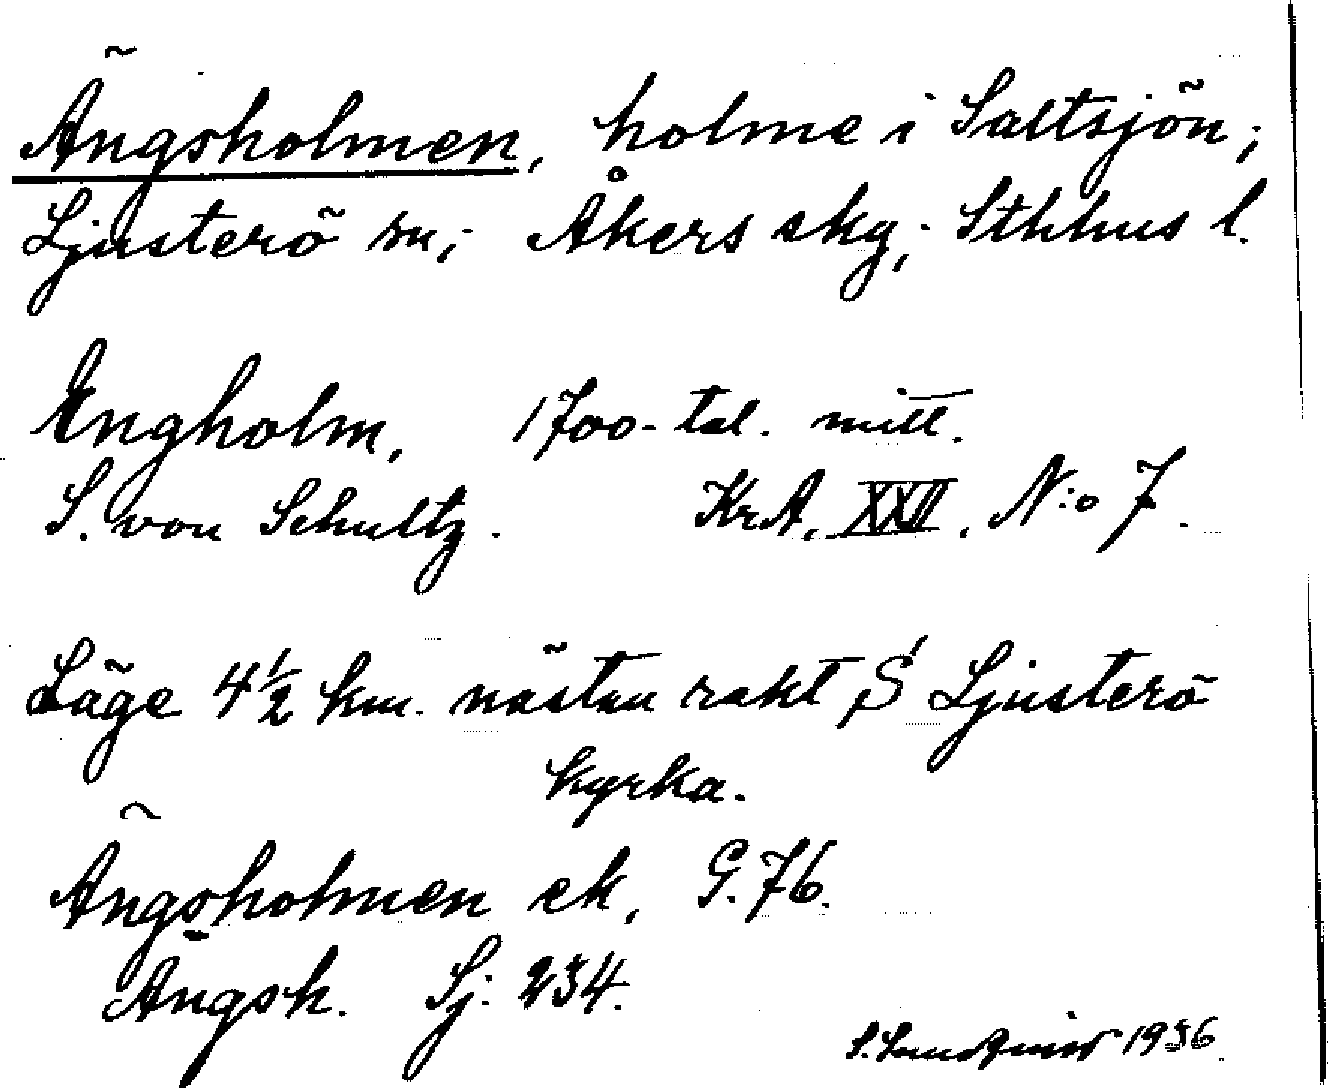 Ängsholmen, holme i Saltsjön;
Ljusterö sn; Åkers skg; Sthlms l.
Engholm, 1700-tal. mitt.
S. von Schultz. KrA, XXII, N:o 7.
Läge 4 1/2 km. nästan rakt S Ljusterö
kyrka.
Ängsholmen ek, G. 76.
Ängsh. Sj: 234.
1936